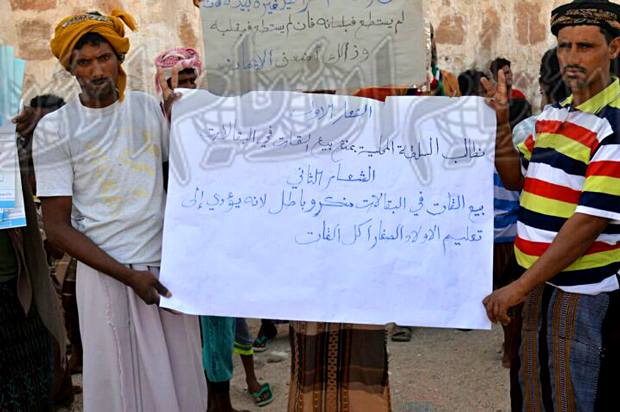 لم يستطع فبلسانه فان لم يستطع فبقلبه
وذالك اضعف الإيمان
الشعار الاول
نطالب السلطة المحلية بمنع بيع القات في البقالات
الشعار الثاني
بيع القات في البقالات منكر وباطل لانه يؤدي إلى
تعليم الاولاد الصغار اكل القات